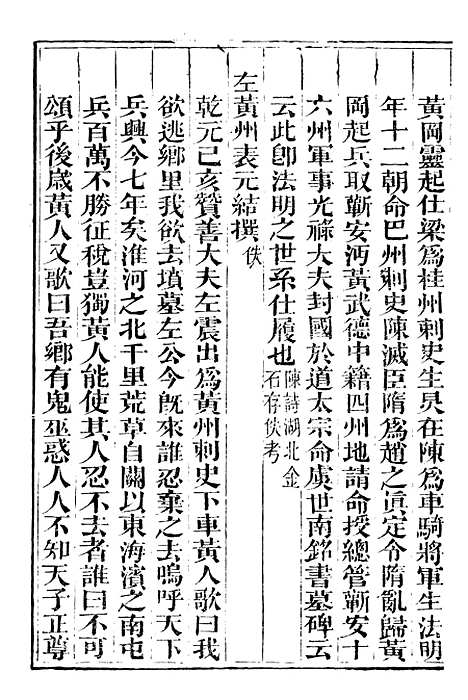 黃岡靈起仕梁爲桂州刺史生炅在陳爲車騎將軍生法明
年十二朝命巴州刺史陳滅臣隋爲趙之眞定令隋亂歸黃
岡起兵取蘄安沔黃武德中籍四州地請命授總管蘄安十
六州軍事光祿大夫封國於道太宗命虞世南銘書墓碑云
云此卽法明之世系仕履也陳詩湖北金
石存佚考
左黃州表元結撰佚
乾元己亥贊善大夫左震出爲黃州刺史下車黃人歌曰我
欲逃鄉里我欲去墳墓左公今旣來誰忍棄之去嗚呼天下
兵興今七年矣淮河之北千里荒草自關以東海濱之南屯
兵百萬不勝征稅豈獨黃人能使其人忍不去者誰曰不可
頌乎後歲黃人又歌曰吾鄉有鬼巫惑人人不知天子正尊